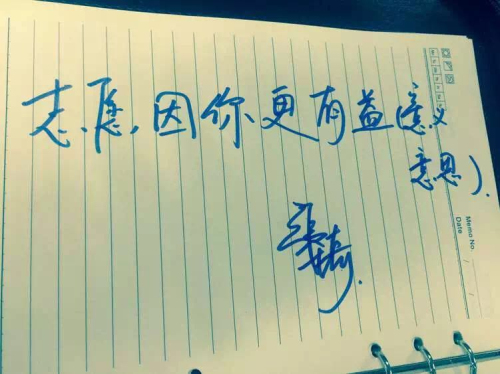 志愿,因你更有益(意义
意思).
Memo No.
Date / /